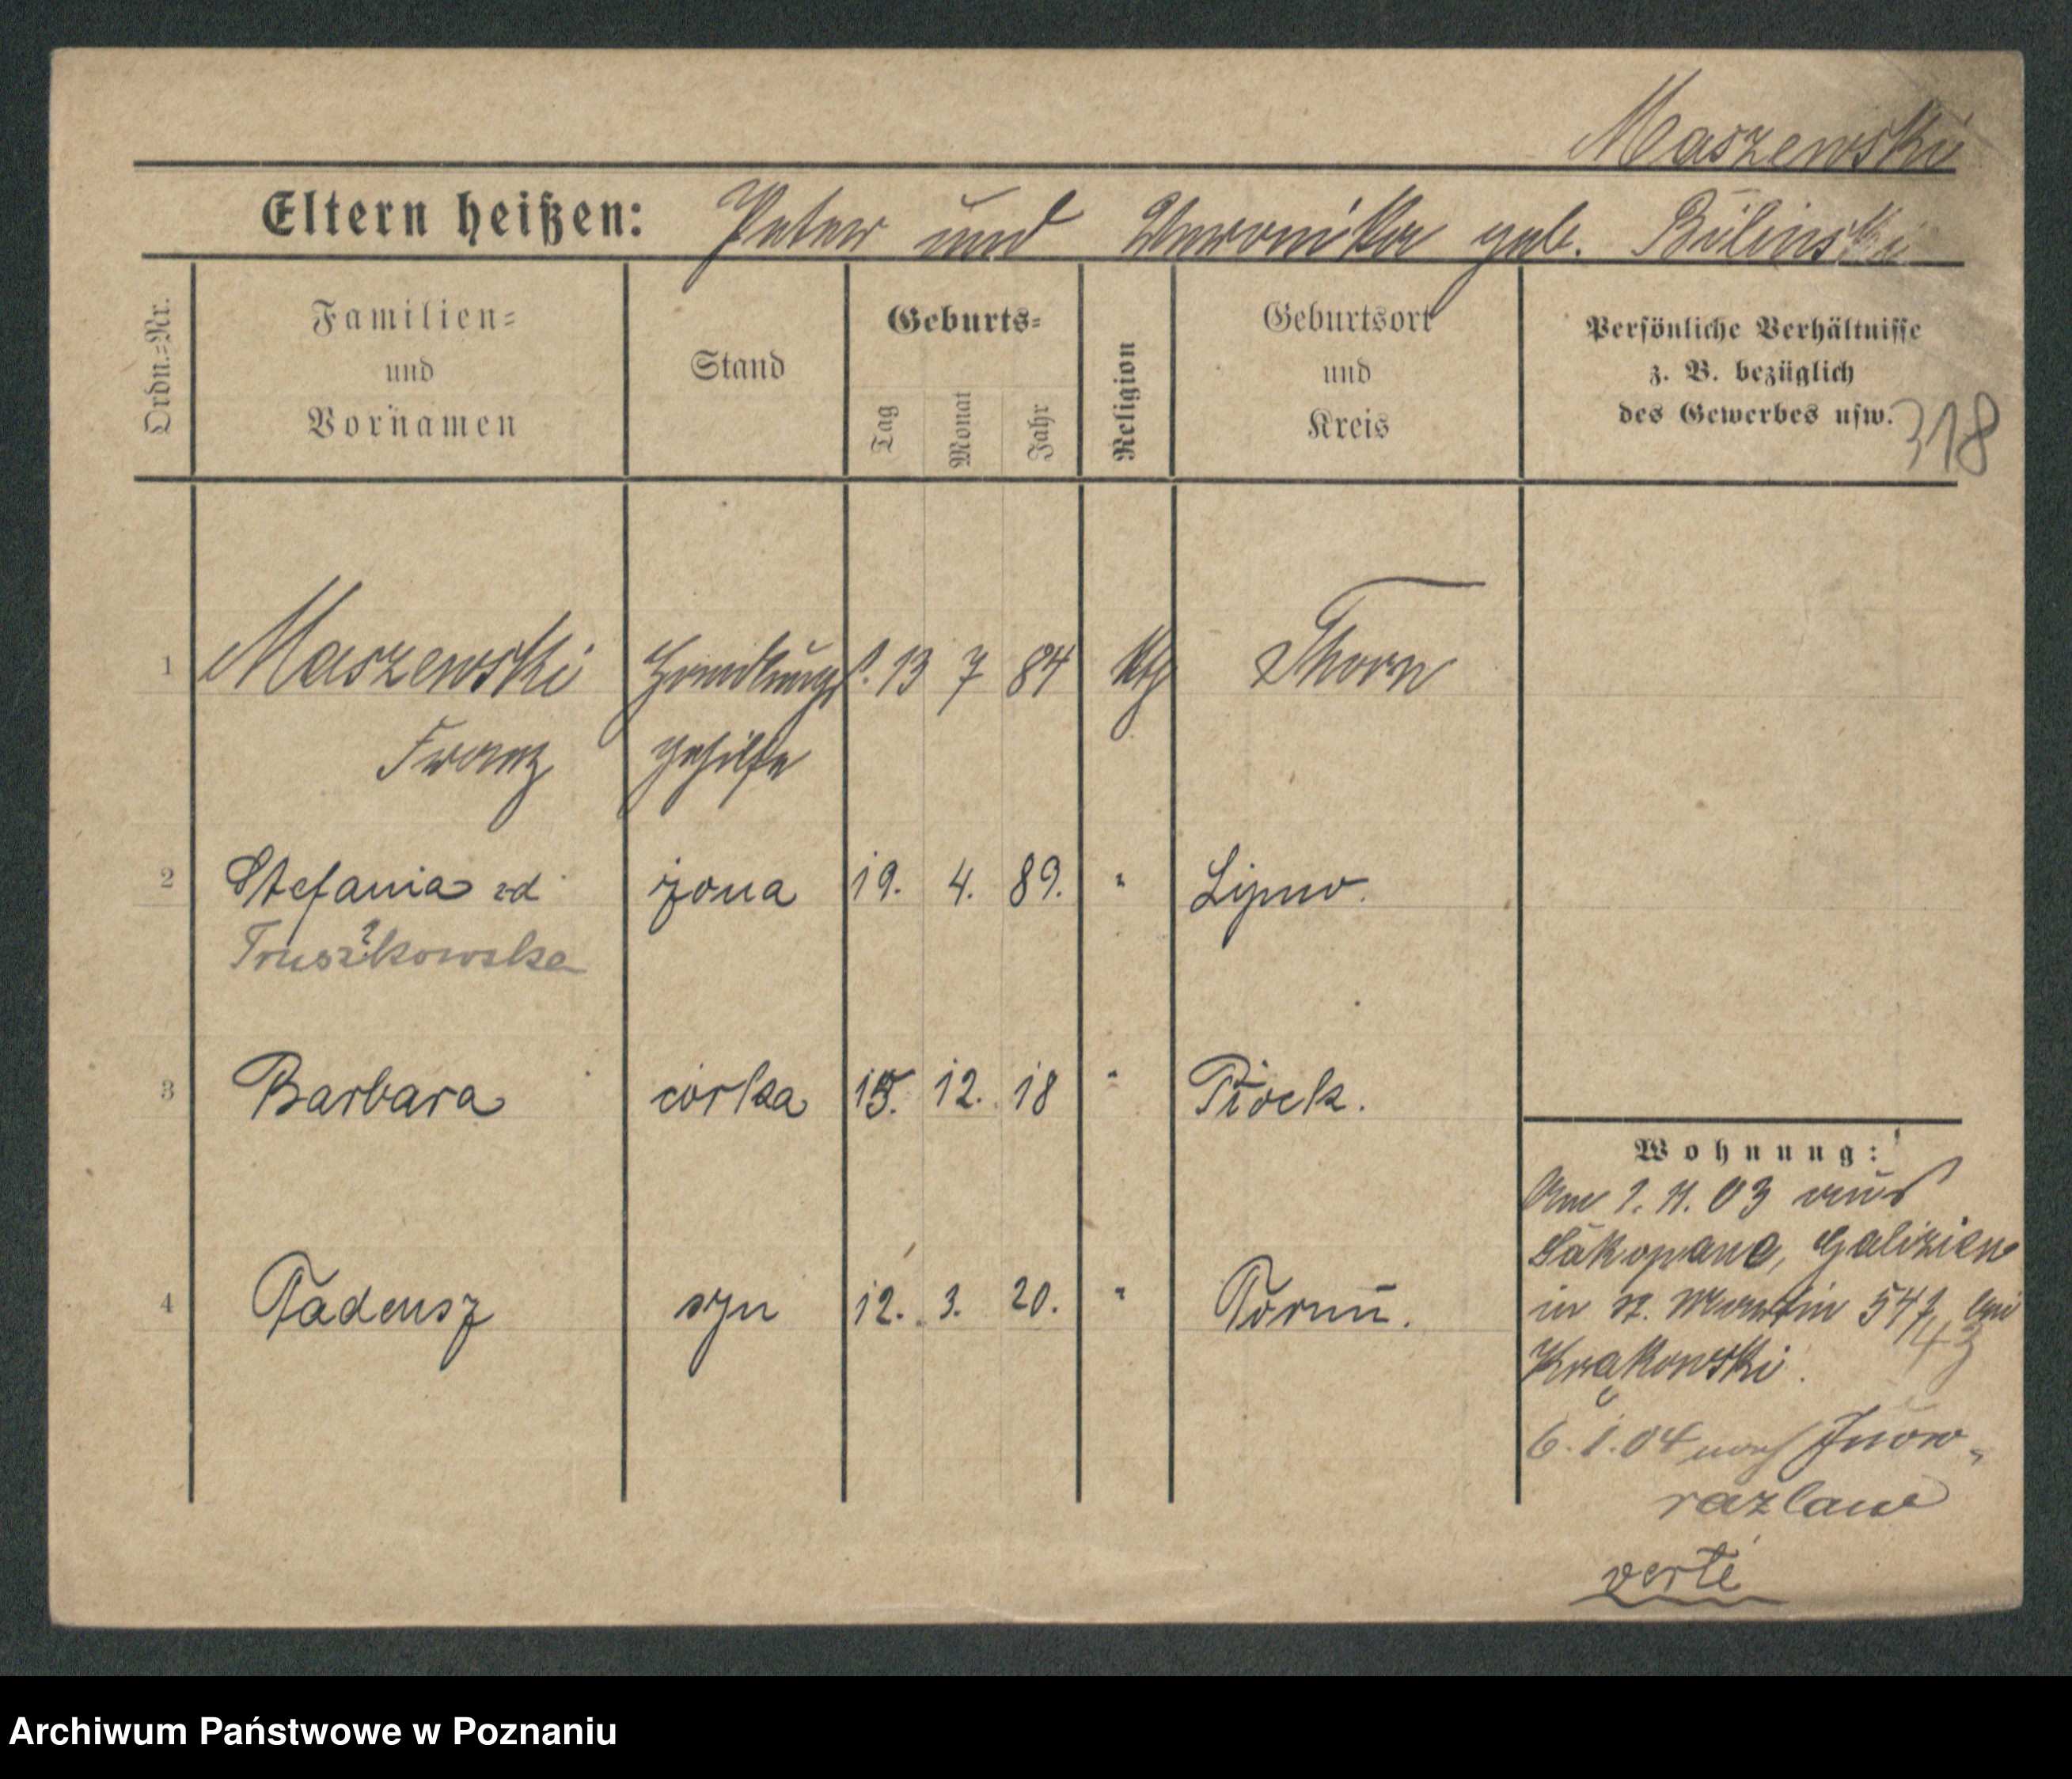 Maszewski
Eltern heißen: Peter und Weronika geb. Bülinski
Ordn.=Nr.
Familien=
und
Vornamen
Stand
Geburts=
Tag
Monat
Jahr
Religion
Geburtsort
und
Kreis
Persönliche Verhältnisse
z. B. bezüglich
des Gewerbes usw.
318
1 Maszewski Handlungs 13 7 84 ktg Thorn
Franz gehilfe
2 Stefania zd żona 19. 4. 89. " Lipno.
Truszkowska
?
3 Barbara córka 15. 12. 18 " Płock.
4 Tadeusz syn 12. 3. 20. " Toruń.
Wohnung:
Am 1. 11. 03 aus
Sakopane, Galizien
in St. Martin 54 bei
43
Krąkowski.
6. 1. 04 nach Inow-
razlaw
verte
Archiwum Państwowe w Poznaniu